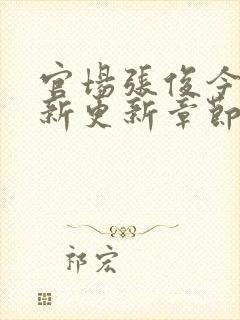 官場張俊今
新更新章節
祁宏